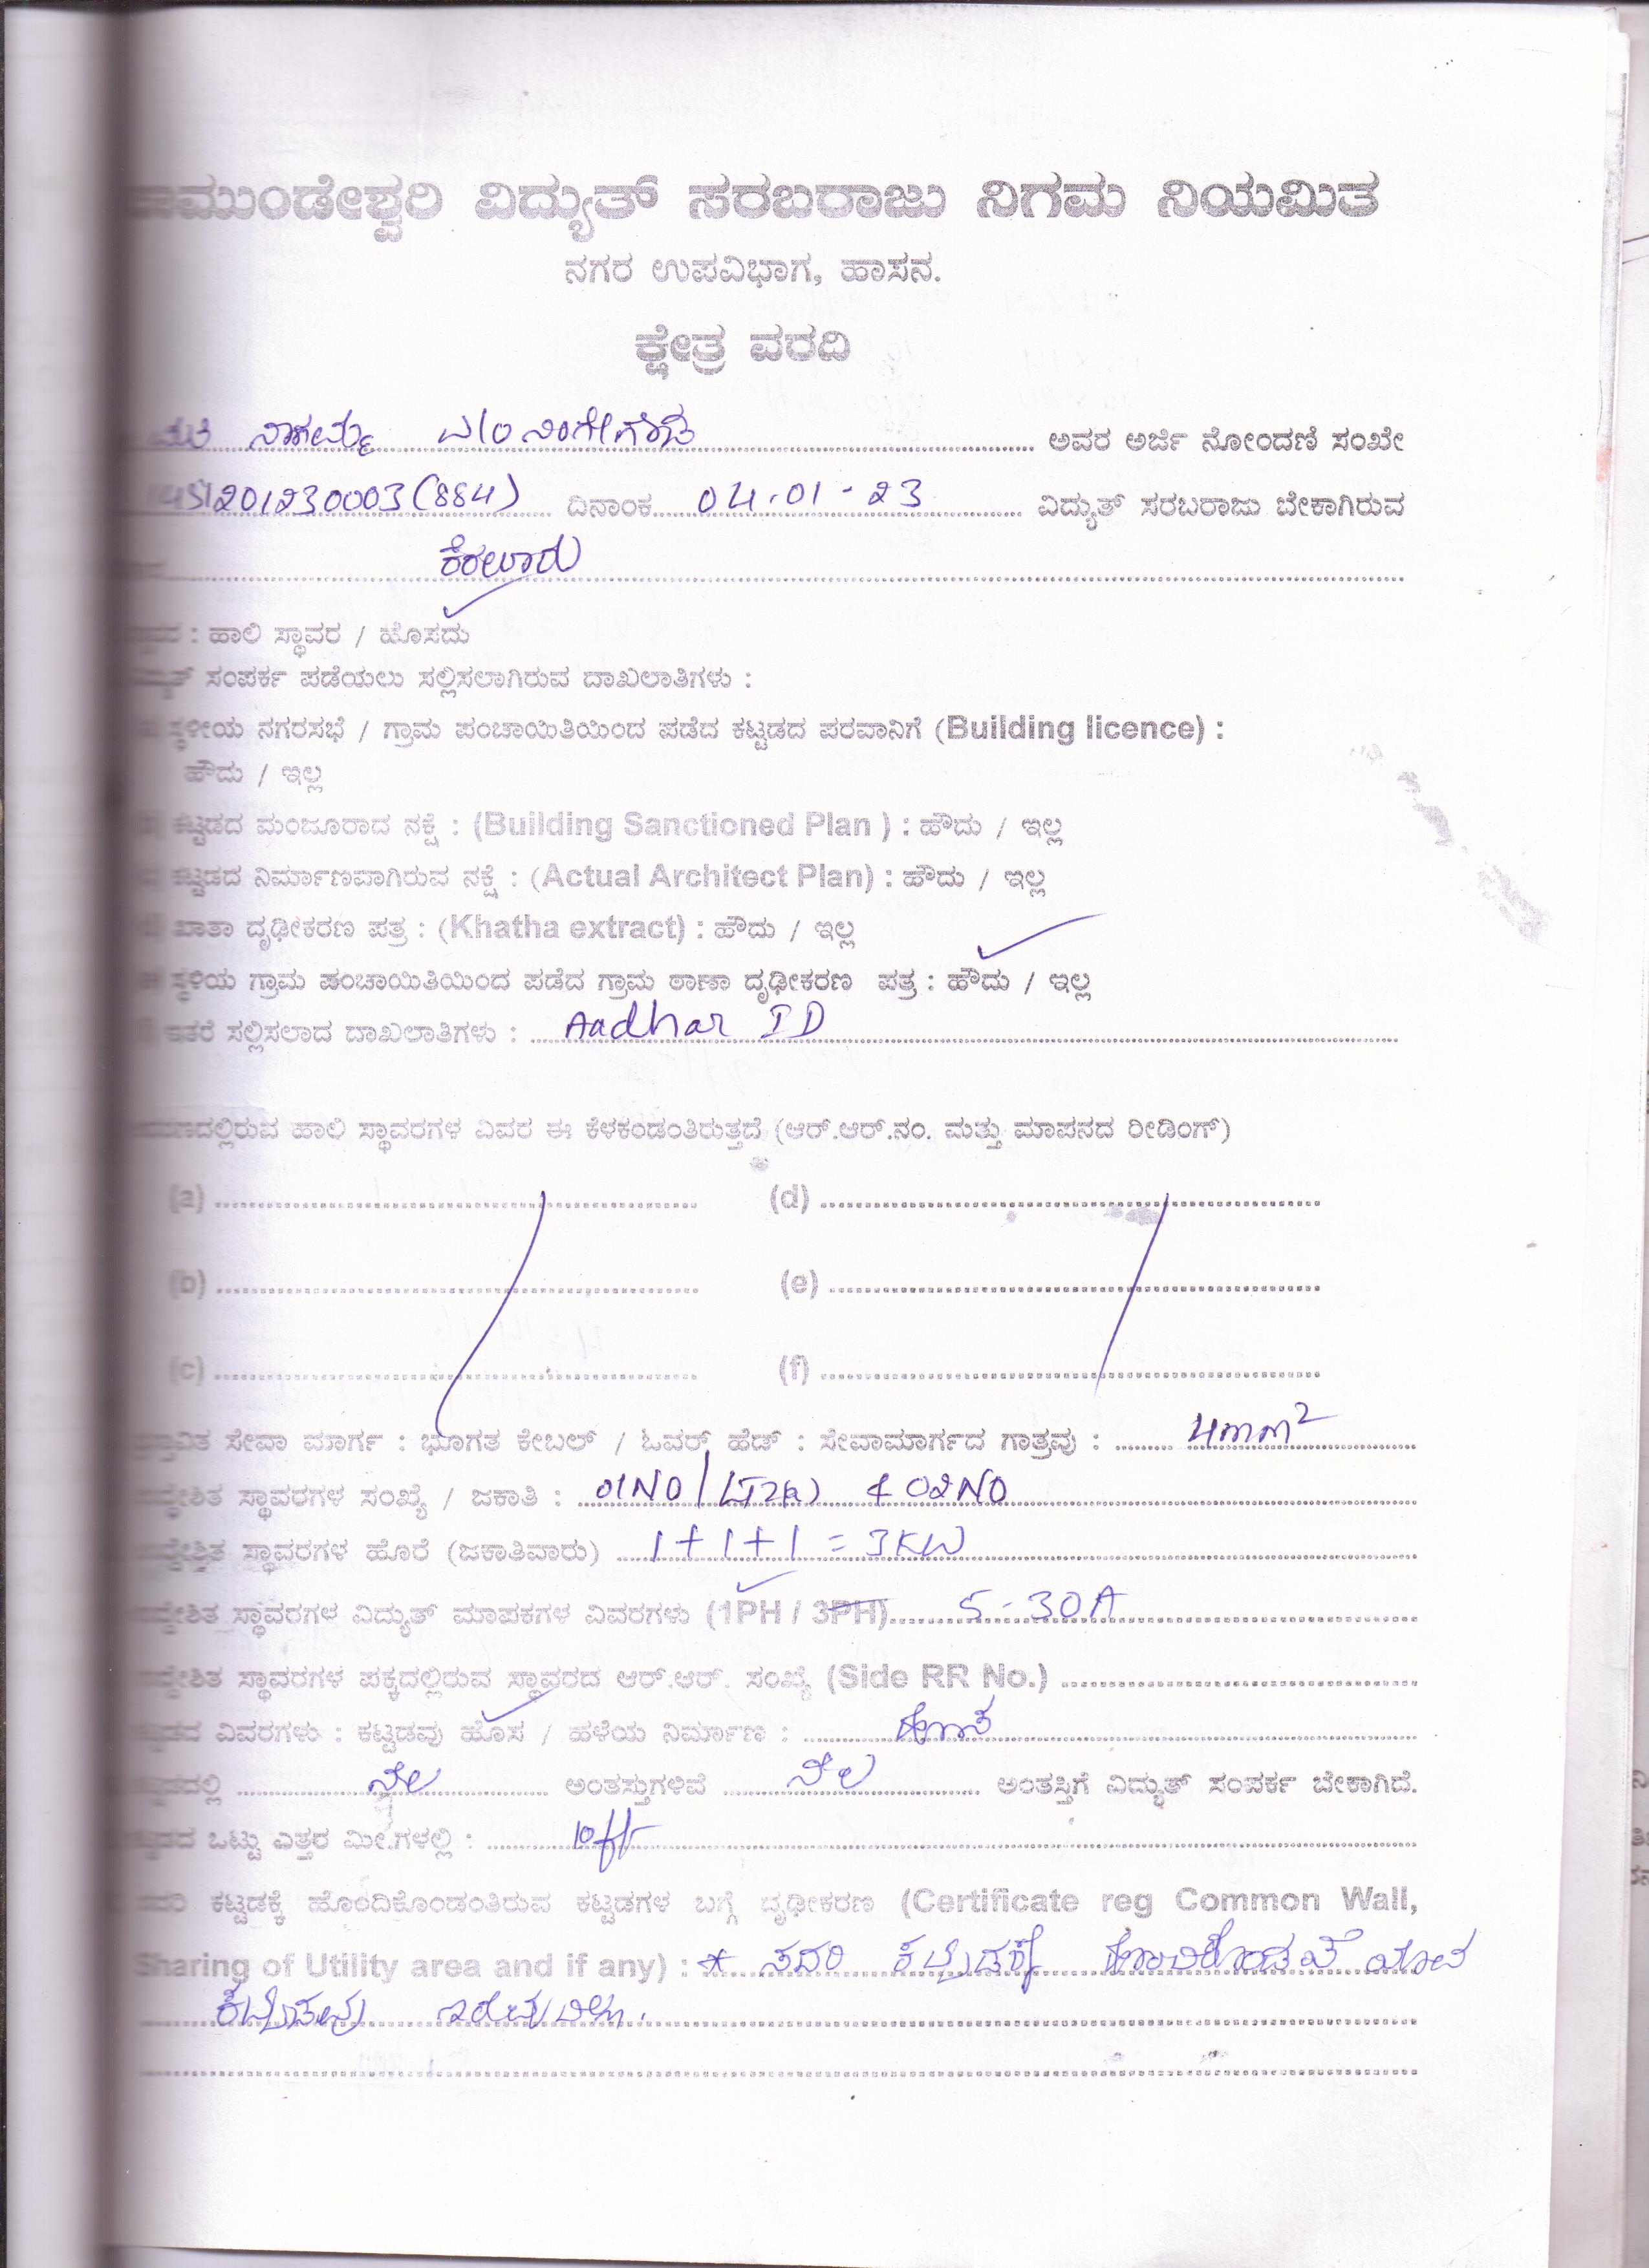 ಚಾಮುಂಡೇಶ್ವರಿ ವಿದ್ಯುತ್ ಸರಬರಾಜು ನಿಗಮ ನಿಯಮಿತ
ನಗರ ಉಪವಿಭಾಗ, ಹಾಸನ.
ಕ್ಷೇತ್ರ ವರದಿ
ಮತಿ ನಾಗಮ್ಮ W/O ನಿಂಗೇಗೌಡ ಅವರ ಅರ್ಜಿ ನೋಂದಣಿ ಸಂಖೇ
201230003(884) ದಿನಾಂಕ 04-01-23 ವಿದ್ಯುತ್ ಸರಬರಾಜು ಬೇಕಾಗಿರುವ
: ಹಾಲಿ ಸ್ಥಾವರ / ಹೊಸದು
ಸಂಪರ್ಕ ಪಡೆಯಲು ಸಲ್ಲಿಸಲಾಗಿರುವ ದಾಖಲಾತಿಗಳು :
ಸ್ಥಳೀಯ ನಗರಸಭೆ / ಗ್ರಾಮ ಪಂಚಾಯಿತಿಯಿಂದ ಪಡೆದ ಕಟ್ಟಡದ ಪರವಾನಿಗೆ (Building licence) :
ಹೌದು / ಇಲ್ಲ
ಕಟ್ಟಡದ ಮಂಜೂರಾದ ನಕ್ಷೆ : (Building Sanctioned Plan ) : ಹೌದು / ಇಲ್ಲ
ಕಟ್ಟಡದ ನಿರ್ಮಾಣವಾಗಿರುವ ನಕ್ಷೆ : (Actual Architect Plan) : ಹೌದು / ಇಲ್ಲ
ಖಾತಾ ದೃಢೀಕರಣ ಪತ್ರ : (Khatha extract) : ಹೌದು / ಇಲ್ಲ
ಸ್ಥಳಿಯ ಗ್ರಾಮ ಪಂಚಾಯಿತಿಯಿಂದ ಪಡೆದ ಗ್ರಾಮ ಠಾಣಾ ದೃಢೀಕರಣ ಪತ್ರ : ಹೌದು / ಇಲ್ಲ
ಇತರೆ ಸಲ್ಲಿಸಲಾದ ದಾಖಲಾತಿಗಳು : Aadhar ID
ಹಾಲಿ ಸ್ಥಾವರಗಳ ವಿವರ ಈ ಕೆಳಕಂಡಂತಿರುತ್ತದೆ (ಆರ್.ಆರ್.ನಂ. ಮತ್ತು ಮಾಪನದ ರೀಡಿಂಗ್)
(a) (d)
(b) (e)
(c) (f)
ಸೇವಾ ಮಾರ್ಗ : ಭೂಗತ ಕೇಬಲ್ / ಓವರ್ ಹೆಡ್ : ಸೇವಾಮಾರ್ಗದ ಗಾತ್ರವು : 4mm²
ಸ್ಥಾವರಗಳ ಸಂಖ್ಯೆ / ಜಕಾತಿ : 01NO/LT2(a) & 02NO
ಸ್ಥಾವರಗಳ ಹೊರೆ (ಜಕಾತಿವಾರು) 1+1+1 = 3KW
ಸ್ಥಾವರಗಳ ವಿದ್ಯುತ್ ಮಾಪಕಗಳ ವಿವರಗಳು (1PH / 3PH) 5-30A
ಸ್ಥಾವರಗಳ ಪಕ್ಕದಲ್ಲಿರುವ ಸ್ಥಾವರದ ಆರ್.ಆರ್. ಸಂಖ್ಯೆ (Side RR No.)
ವಿವರಗಳು : ಕಟ್ಟಡವು ಹೊಸ / ಹಳೆಯ ನಿರ್ಮಾಣ : ಹೊಸ
ನೆಲ ಅಂತಸ್ತುಗಳಿವೆ ನೆಲ ಅಂತಸ್ತಿಗೆ ವಿದ್ಯುತ್ ಸಂಪರ್ಕ ಬೇಕಾಗಿದೆ.
ಒಟ್ಟು ಎತ್ತರ ಮೀ.ಗಳಲ್ಲಿ : 10ft
ಸದರಿ ಕಟ್ಟಡಕ್ಕೆ ಹೊಂದಿಕೊಂಡಂತಿರುವ ಕಟ್ಟಡಗಳ ಬಗ್ಗೆ ದೃಢೀಕರಣ (Certificate reg Common Wall,
Sharing of Utility area and if any) : * ಸದರಿ ಕಟ್ಟಡಕ್ಕೆ ಹೊಂದಿಕೊಂಡಂತೆ ಯಾವ
ಕಟ್ಟಡವು ಇರುವುದಿಲ್ಲ.